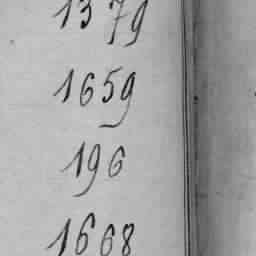 1379
1659
196
1668